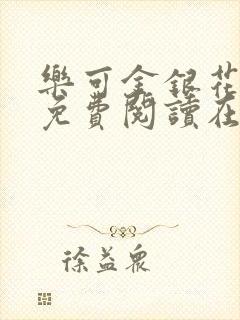 樂可金銀花
免費閱讀在
徐益眾